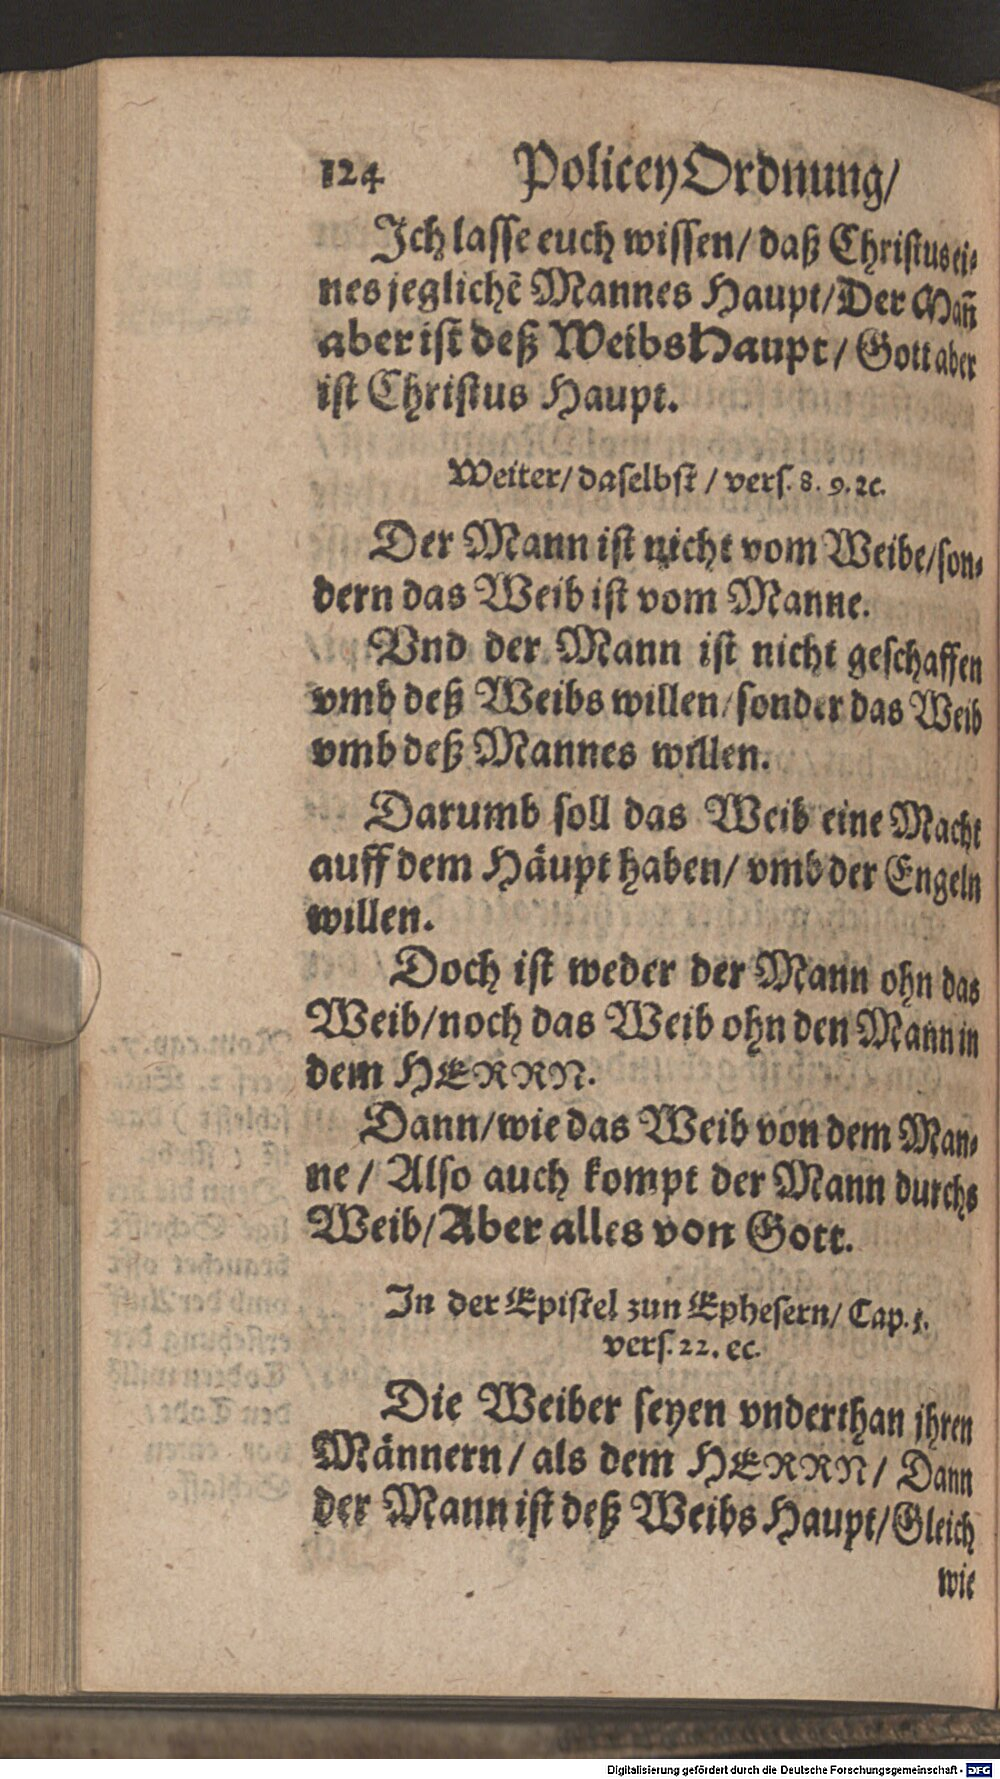 124 Policey Ordnung/
Ich lasse euch wissen/ daß Christus ei-
nes jeglichẽ Mannes Haupt/ Der Mañ
aber ist deß Weibs Haupt/ Gott aber
ist Christus Haupt.
Weiter/ daselbst/ vers. 8. 9. ꝛc.
Der Mann ist nicht vom Weibe/ son-
dern das Weib ist vom Manne.
Vnd der Mann ist nicht geschaffen
vmb deß Weibs willen/ sonder das Weib
vmb deß Mannes willen.
Darumb soll das Weib eine Macht
auff dem Häupt haben/ vmb der Engeln
willen.
Doch ist weder der Mann ohn das
Weib/ noch das Weib ohn den Mann in
dem HERRN.
Dann/ wie das Weib von dem Man-
ne/ Also auch kompt der Mann durchs
Weib/ Aber alles von Gott.
In der Epistel zun Ephesern/ Cap. 5.
vers. 22. ec.
Die Weiber seyen vnderthan ihren
Männern/ als dem HERRN/ Dann
der Mann ist deß Weibs Haupt/ Gleich
wie
Digitalisierung gefördert durch die Deutsche Forschungsgemeinschaft - DFG